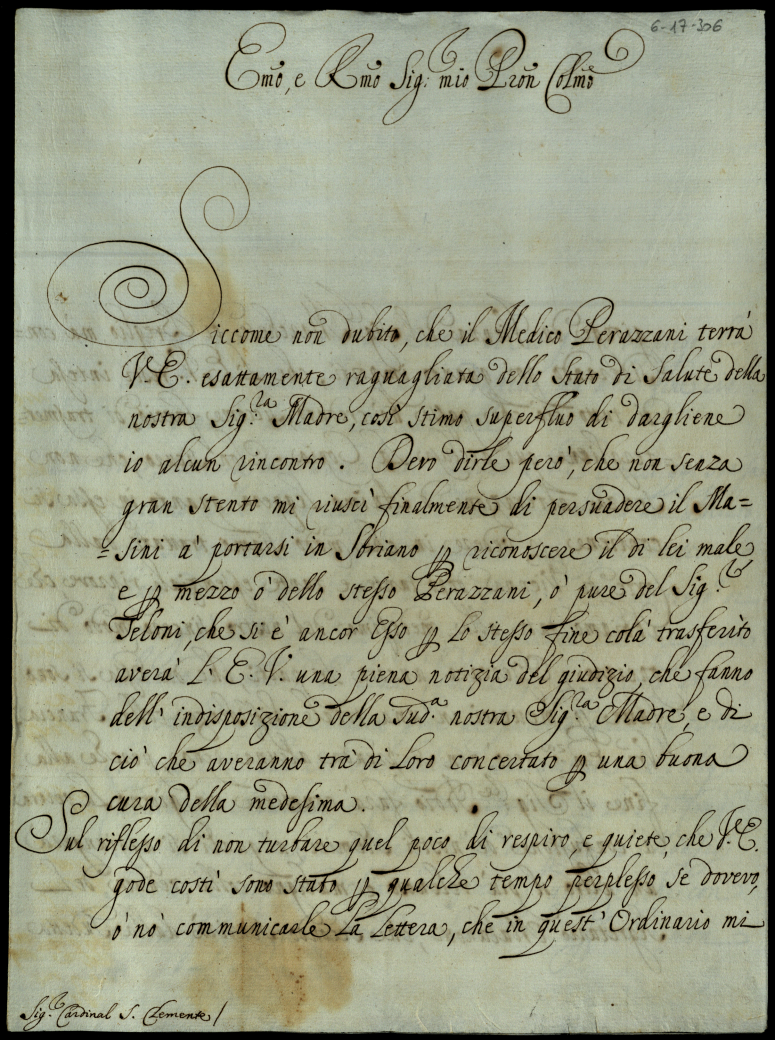 6-17-306
Emõ, e Rmõ Sig: mio Prõn Colmõ
Siccome non dubito, che il Medico Perazzani terrà
V. E. esattamente raguagliata dello stato di Salute della
nostra Sig.ra Madre, così stimo superfluo di dargliene
io alcun rincontro. Devo dirle però, che non senza
gran stento mi riuscì finalmente di persuadere il Ma=
=sini à portarsi in Soriano p riconoscere il di lei male
e p mezzo ò dello stesso Perazzani, ò pure del Sig.r
Teloni, che si è ancor Esso p lo stesso fine colà trasferito
averà L' E. V. una piena notizia del giudizio, che fanno
dell' indisposizione della Sud.a nostra Sig.ra Madre, e di
ciò che averanno trà di Loro concertato p una buona
cura della medesima.
Sul riflesso di non turbare quel poco di respiro, e quiete, che V. E.
gode costì sono stato p qualche tempo perplesso, se dovevo,
ò nò communicarle La Lettera, che in quest' Ordinario mi
Sig.r Cardinal S. Clemente /